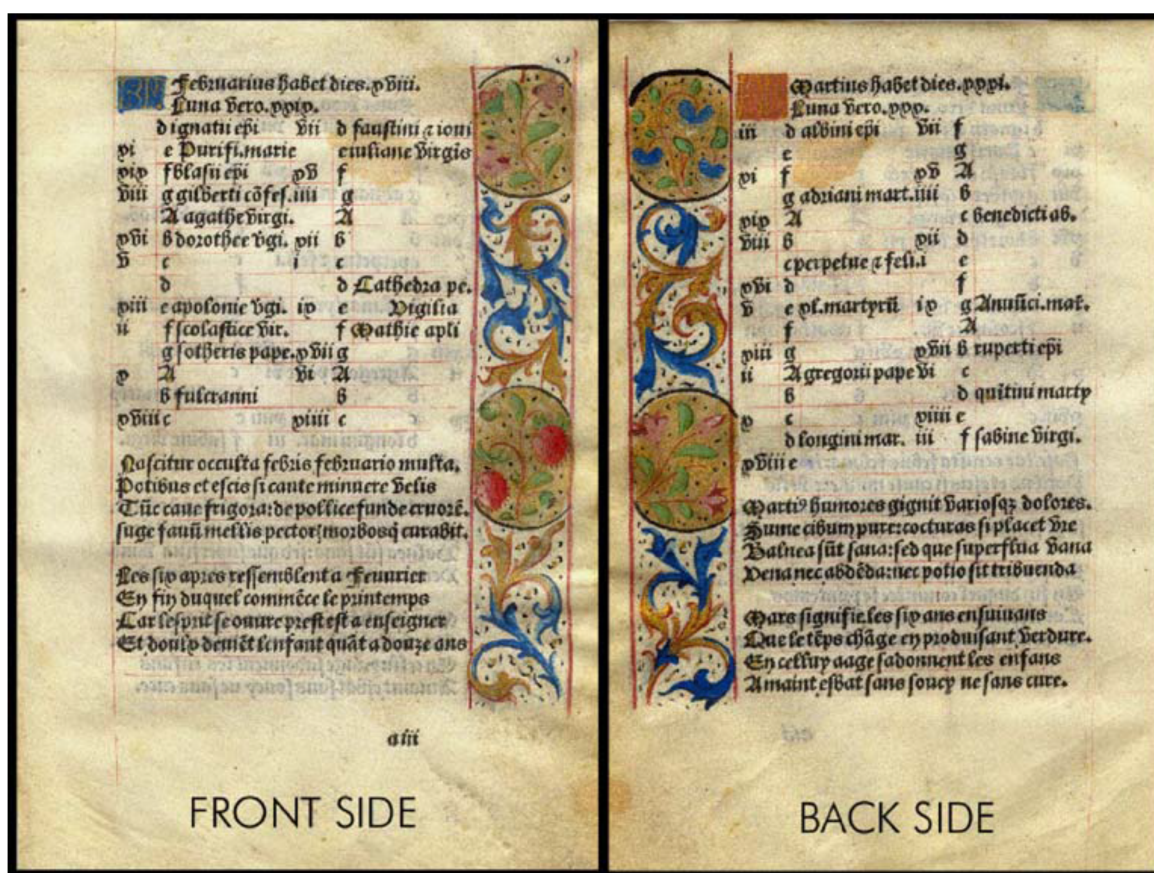 Februarius habet dies. xviii.
Luna vero. xxix.
d ignatii epi vii d faustini ⁊ ioui
xi e Purifi. marie e iuliane virgis
xix f blasii epi xv f
viii g gilberti cõfes. iiii g
A agathe virgi. A
xvi b dorothee vgi. xii b
v c i c
d d Cathedra pe.
xiii e apolonie vgi. ix e Vigilia
ii f scolastice vir. f Mathie apli
g sotheris pape. xvii g
x A vi A
b fulcranni b
xviii c xiiii c
Nascitur occulta febris februario multa.
Potibus et escis si caute minuere velis
Tũc caue frigora: de pollice funde cruorẽ.
suge fauũ mellis pectoris morbosq̃ curabit.
Les six apres ressemblent a feuurier
En fin duquel commẽce le printemps
Car lesprit se ouure prest est a enseigner
Et doulx deuiẽt lenfant quãt a douze ans
aiii
FRONT SIDE
Martius habet dies. xxxi.
Luna vero. xxx.
iii d albini epi vii f
e g
xi f xv A
g adriani mart. iiii b
xix A c benedicti ab.
viii b xii d
c perpetue ⁊ feli. i e
xvi d f
v e xl. martyrũ ix g Anũci. mar̃.
f A
xiii g xvii b ruperti epi
ii A gregorii pape vi c
b d quĩtini marty
x c xiiii e
d longini mar. iii f sabine virgi.
xviii e
Martiꝰ humores gignit variosqꝫ dolores.
Sume cibum pure: cocturas si placet vre
Balnea sũt sana: sed que superflua vana
Vena nec abdẽda: nec potio sit tribuenda
Mars signifie les six ans ensuiuans
Que le tẽps chãge en produisant verdure.
En celluy aage sadonnent les enfans
A maint esbat sans soucy ne sans cure.
BACK SIDE